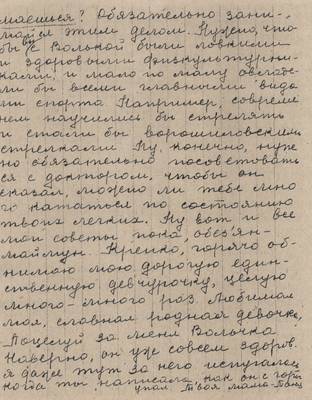 маешься? Обязательно зани-
майся этим делом. Нужно, что
бы вы с Волькой были ловкими
и здоровыми физкультурни-
ками, и мало по малу овладе-
ли бы всеми главными вида
ми спорта. Например, совреме
нем научились бы стрелять
и стали бы ворошиловскими
стрелками. Ну, конечно, нуж
но обязательно посоветовать
ся с доктором, чтобы он
сказал, можно ли тебе мно
го кататься по состоянию
твоих легких. Ну вот и все
мои советы пока, обез'ян-
Крепко, горячо об-
нимаю мою дорогую един-
ственную девчурочку, целую
много-много раз. Любимая
моя, славная родная девочка,
Поцелуй за меня Вольчка
Наверно, он уже совсем здоров.
Я даже тут за него испугалась,
когда ты написала, как он с горы
упал Твоя мама-